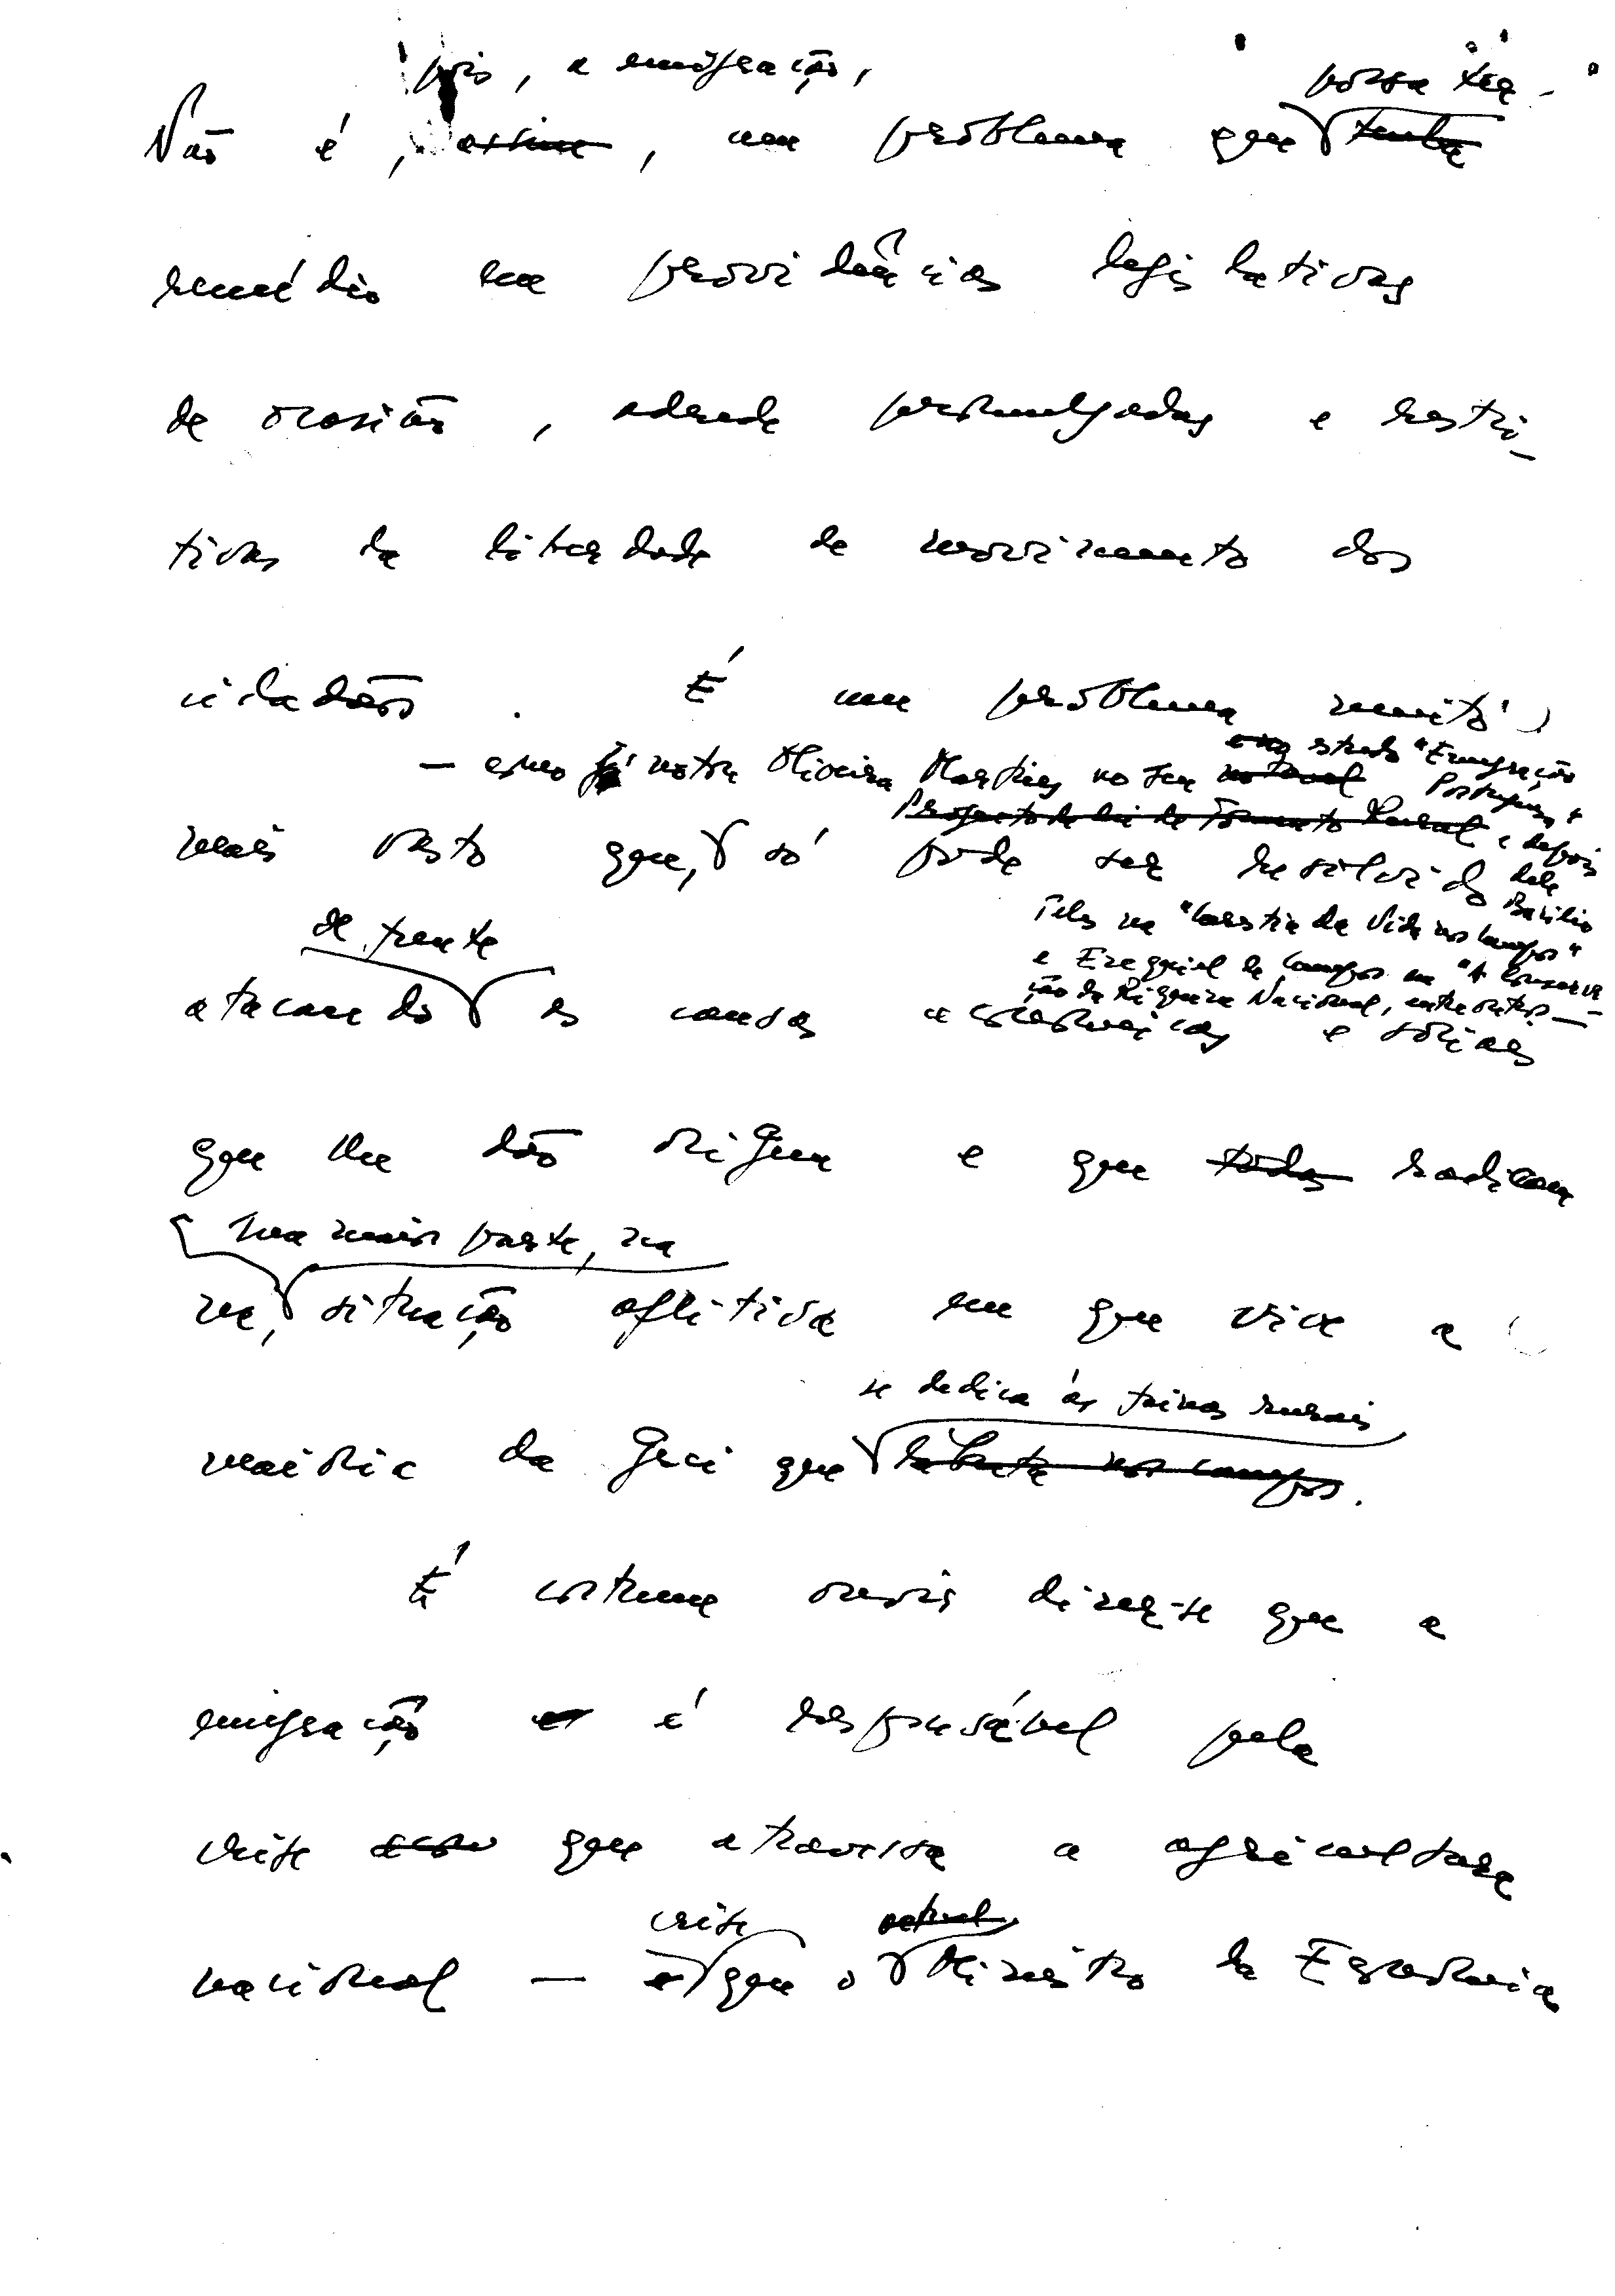 pois, a emigração,
possa ter
Não é, assim, um problema que tenha
remédio em providências legislativas
de ocasião, adrede promulgadas e restri-
tivas da liberdade de movimento dos
cidadãos. É um problema muito
estudo "Emigração
— como já nota Oliveira Martins no seu notável Portuguesa"
Projecto de lei de Fomento Rural e depois
mais vasto que, só pode ser resolvido dele
Basílio
Teles na "Carestia da Vida nos Campos"
de frente
e Ezequiel de Campos na "A Conserva
ção da Riqueza Nacional, entre outros —
atacando as causas económicas e sociais
que lhe dão origem e que todas radicam
sua maior parte, na
na, situação aflitiva em que vive a
se dedica às fainas rurais
maioria da grei que labuta nos campos.
É costume ouvir dizer-se que a
emigração é responsável pela
crise que atravessa a agricultura
crise actual
nacional — que o Ministro da Economia